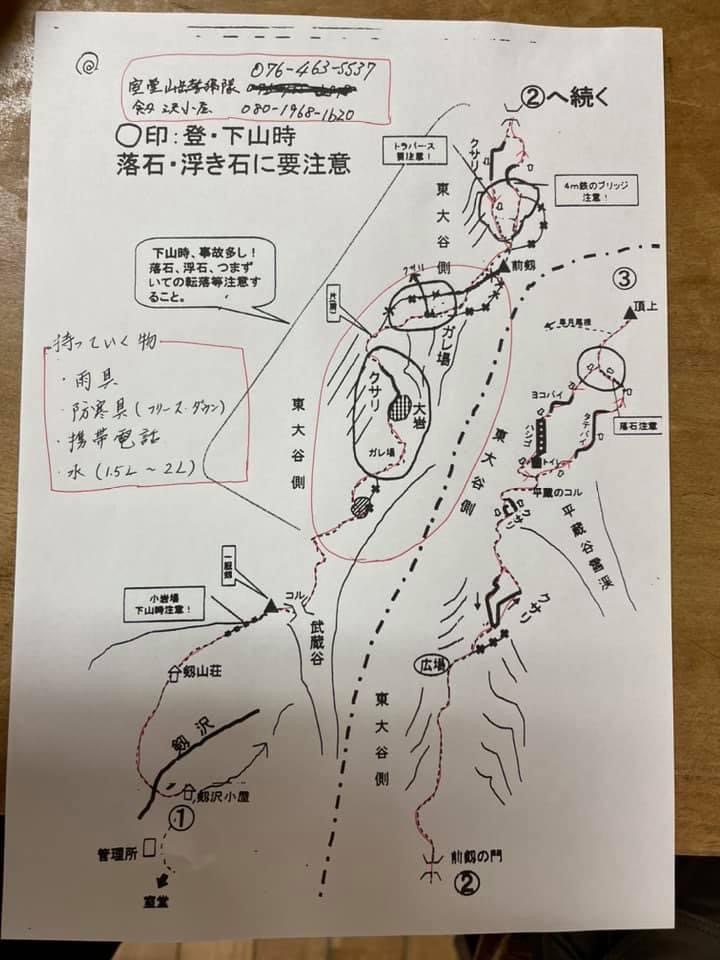 室堂山岳警備隊 076-463-5537
剱沢小屋 080-1968-1620
○印：登・下山時
落石・浮き石に要注意
②へ続く
クサリ
トラバース
要注意！
4m鉄のブリッジ
注意！
東大谷側
前剱
クサリ
下山時、事故多し！
落石、浮石、つまず
いての転落等注意す
ること。
ガレ場
③
頂上
早月尾根
持っていく物
・雨具
・防寒具（フリース・ダウン）
・携帯電話
・水（1.5L～2L）
クサリ
大岩
ガレ場
東大谷側
東大谷側
ヨコバイ
ハシゴ
タテバイ
落石注意
トイレ
平蔵のコル
クサリ
平蔵谷雪渓
一服剱
小岩場
下山時注意！
コル
武蔵谷
クサリ
広場
剱山荘
剱沢
東大谷側
剱沢小屋
①
管理所
室堂
前剱の門
②